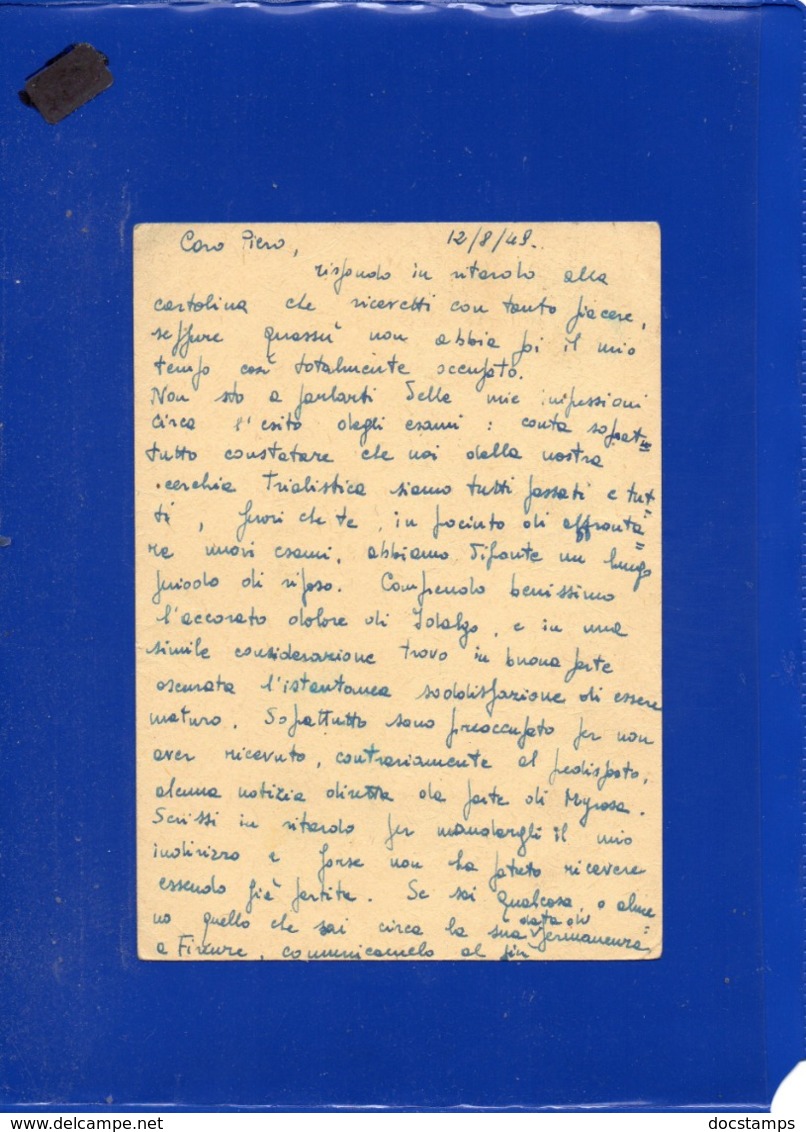 Caro Piero, 12/8/48.
rispondo in ritardo alla
cartolina che ricevetti con tanto piacere,
seppure quassù non abbia poi il mio
tempo così totalmente occupato.
Non sto a parlarti delle mie impressioni
circa l'esito degli esami: conta soprat=
tutto constatare che noi della nostra
cerchia siamo tutti passati e tut=
ti, fuori che te, in procinto di affronta=
re nuovi esami, abbiamo difronte un lungo
periodo di riposo. Comprendo benissimo
l'accorato dolore di Idalgo, e in una
simile considerazione trovo in buona parte
oscurata l'istantanea soddisfazione di essere
maturo. Soprattutto sono preoccupato per non
aver ricevuto, contrariamente al predisposto,
alcuna notizia diretta da parte di
Scrissi in ritardo per mandargli il mio
indirizzo e forse non ha potuto ricevere
essendo già partita. Se sai qualcosa, o alme=
no quello che sai circa la sua data di permanenza
a Firenze, comunicamelo al più
docstamps